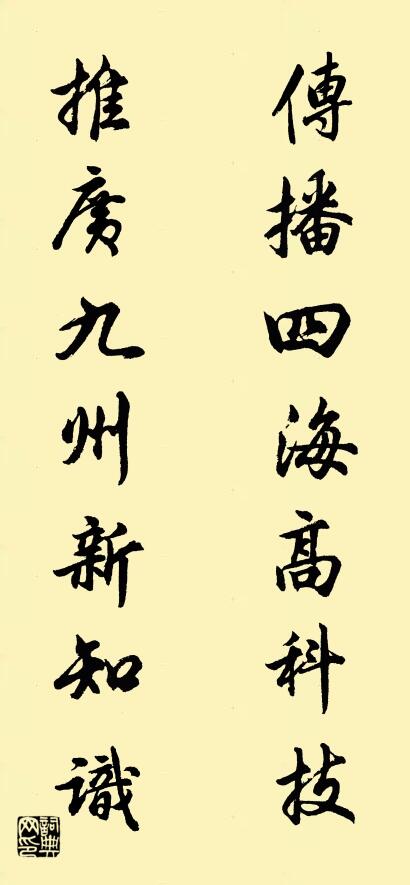 傳播四海高科技
推廣九州新知識
詞典網印